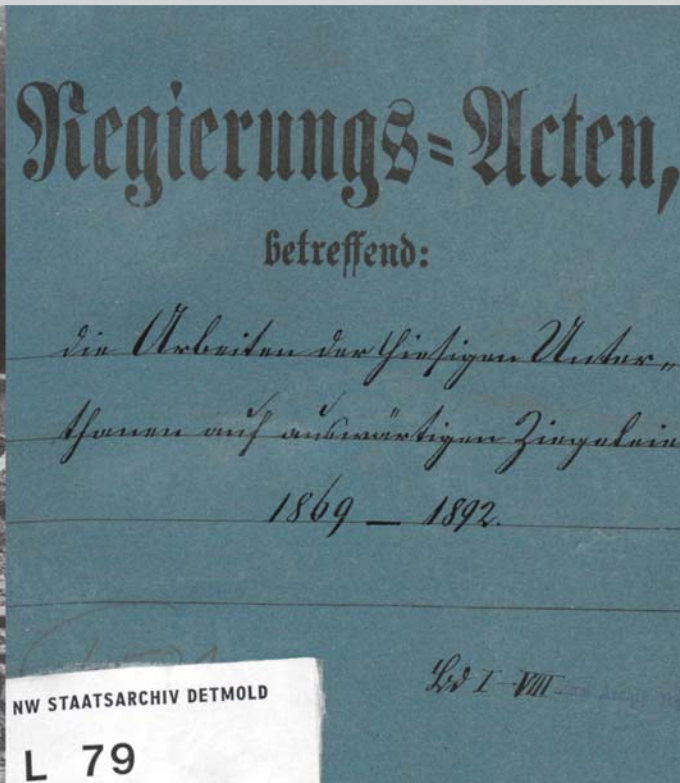 Regierungs=Acten,
betreffend:
die Arbeiten der hiesigen Unter„
thanen auf auswärtigen Ziegeleie
1869 — 1892.
Bd I-VIII
NW STAATSARCHIV DETMOLD
L 79